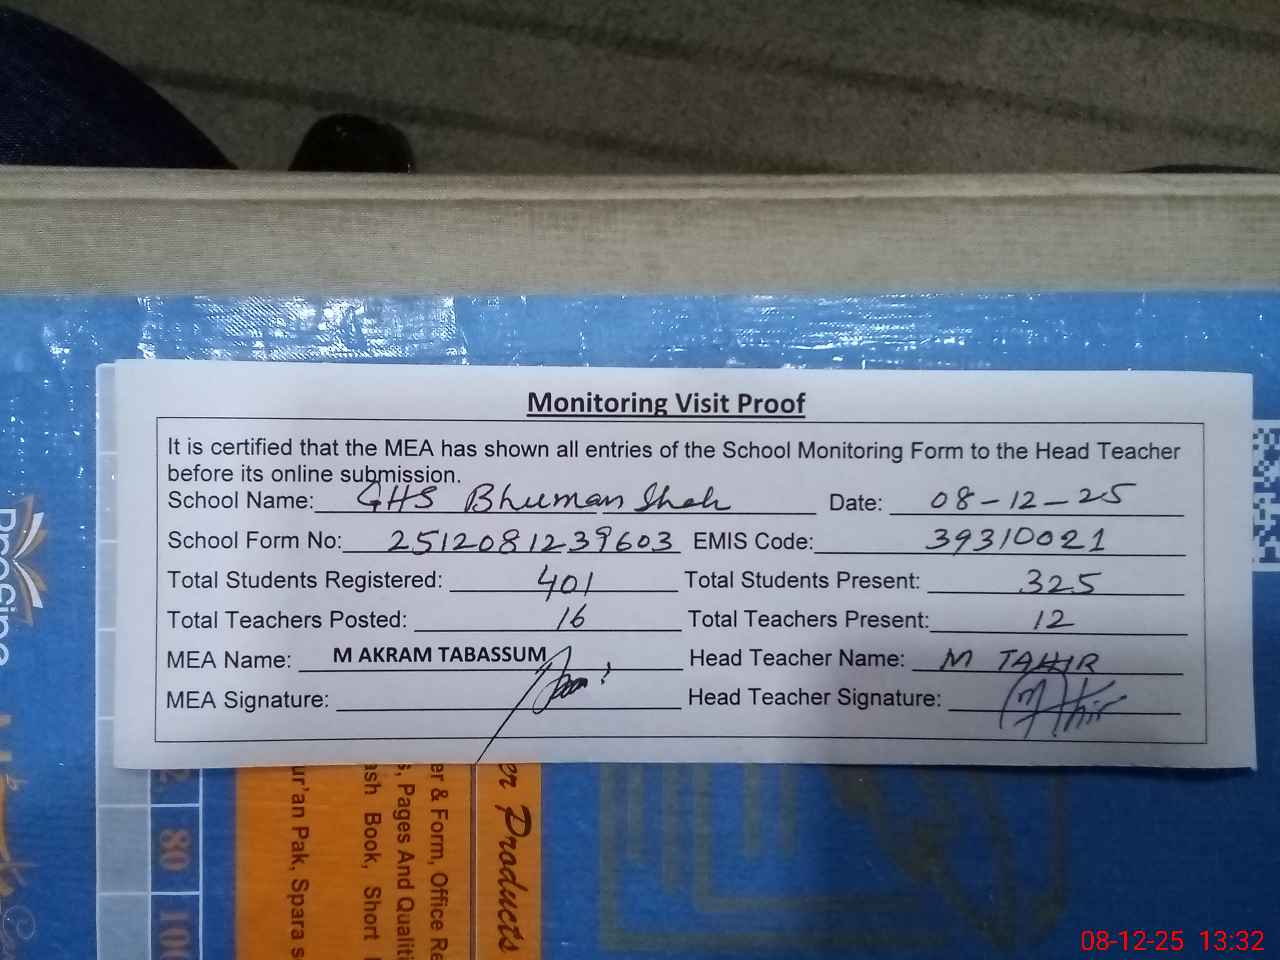 Monitoring Visit Proof
It is certified that the MEA has shown all entries of the School Monitoring Form to the Head Teacher
before its online submission.
School Name: GHS Bhuman Shah Date: 08-12-25
School Form No: 2512081239603 EMIS Code: 39310021
Total Students Registered: 401 Total Students Present: 325
Total Teachers Posted: 16 Total Teachers Present: 12
MEA Name: M AKRAM TABASSUM Head Teacher Name: M TAHIR
MEA Signature: Head Teacher Signature:
er Products
er & Form, Office Re
s, Pages And Qualiti
ash Book, Short
ur'an Pak, Spara s
80
100
08-12-25 13:32